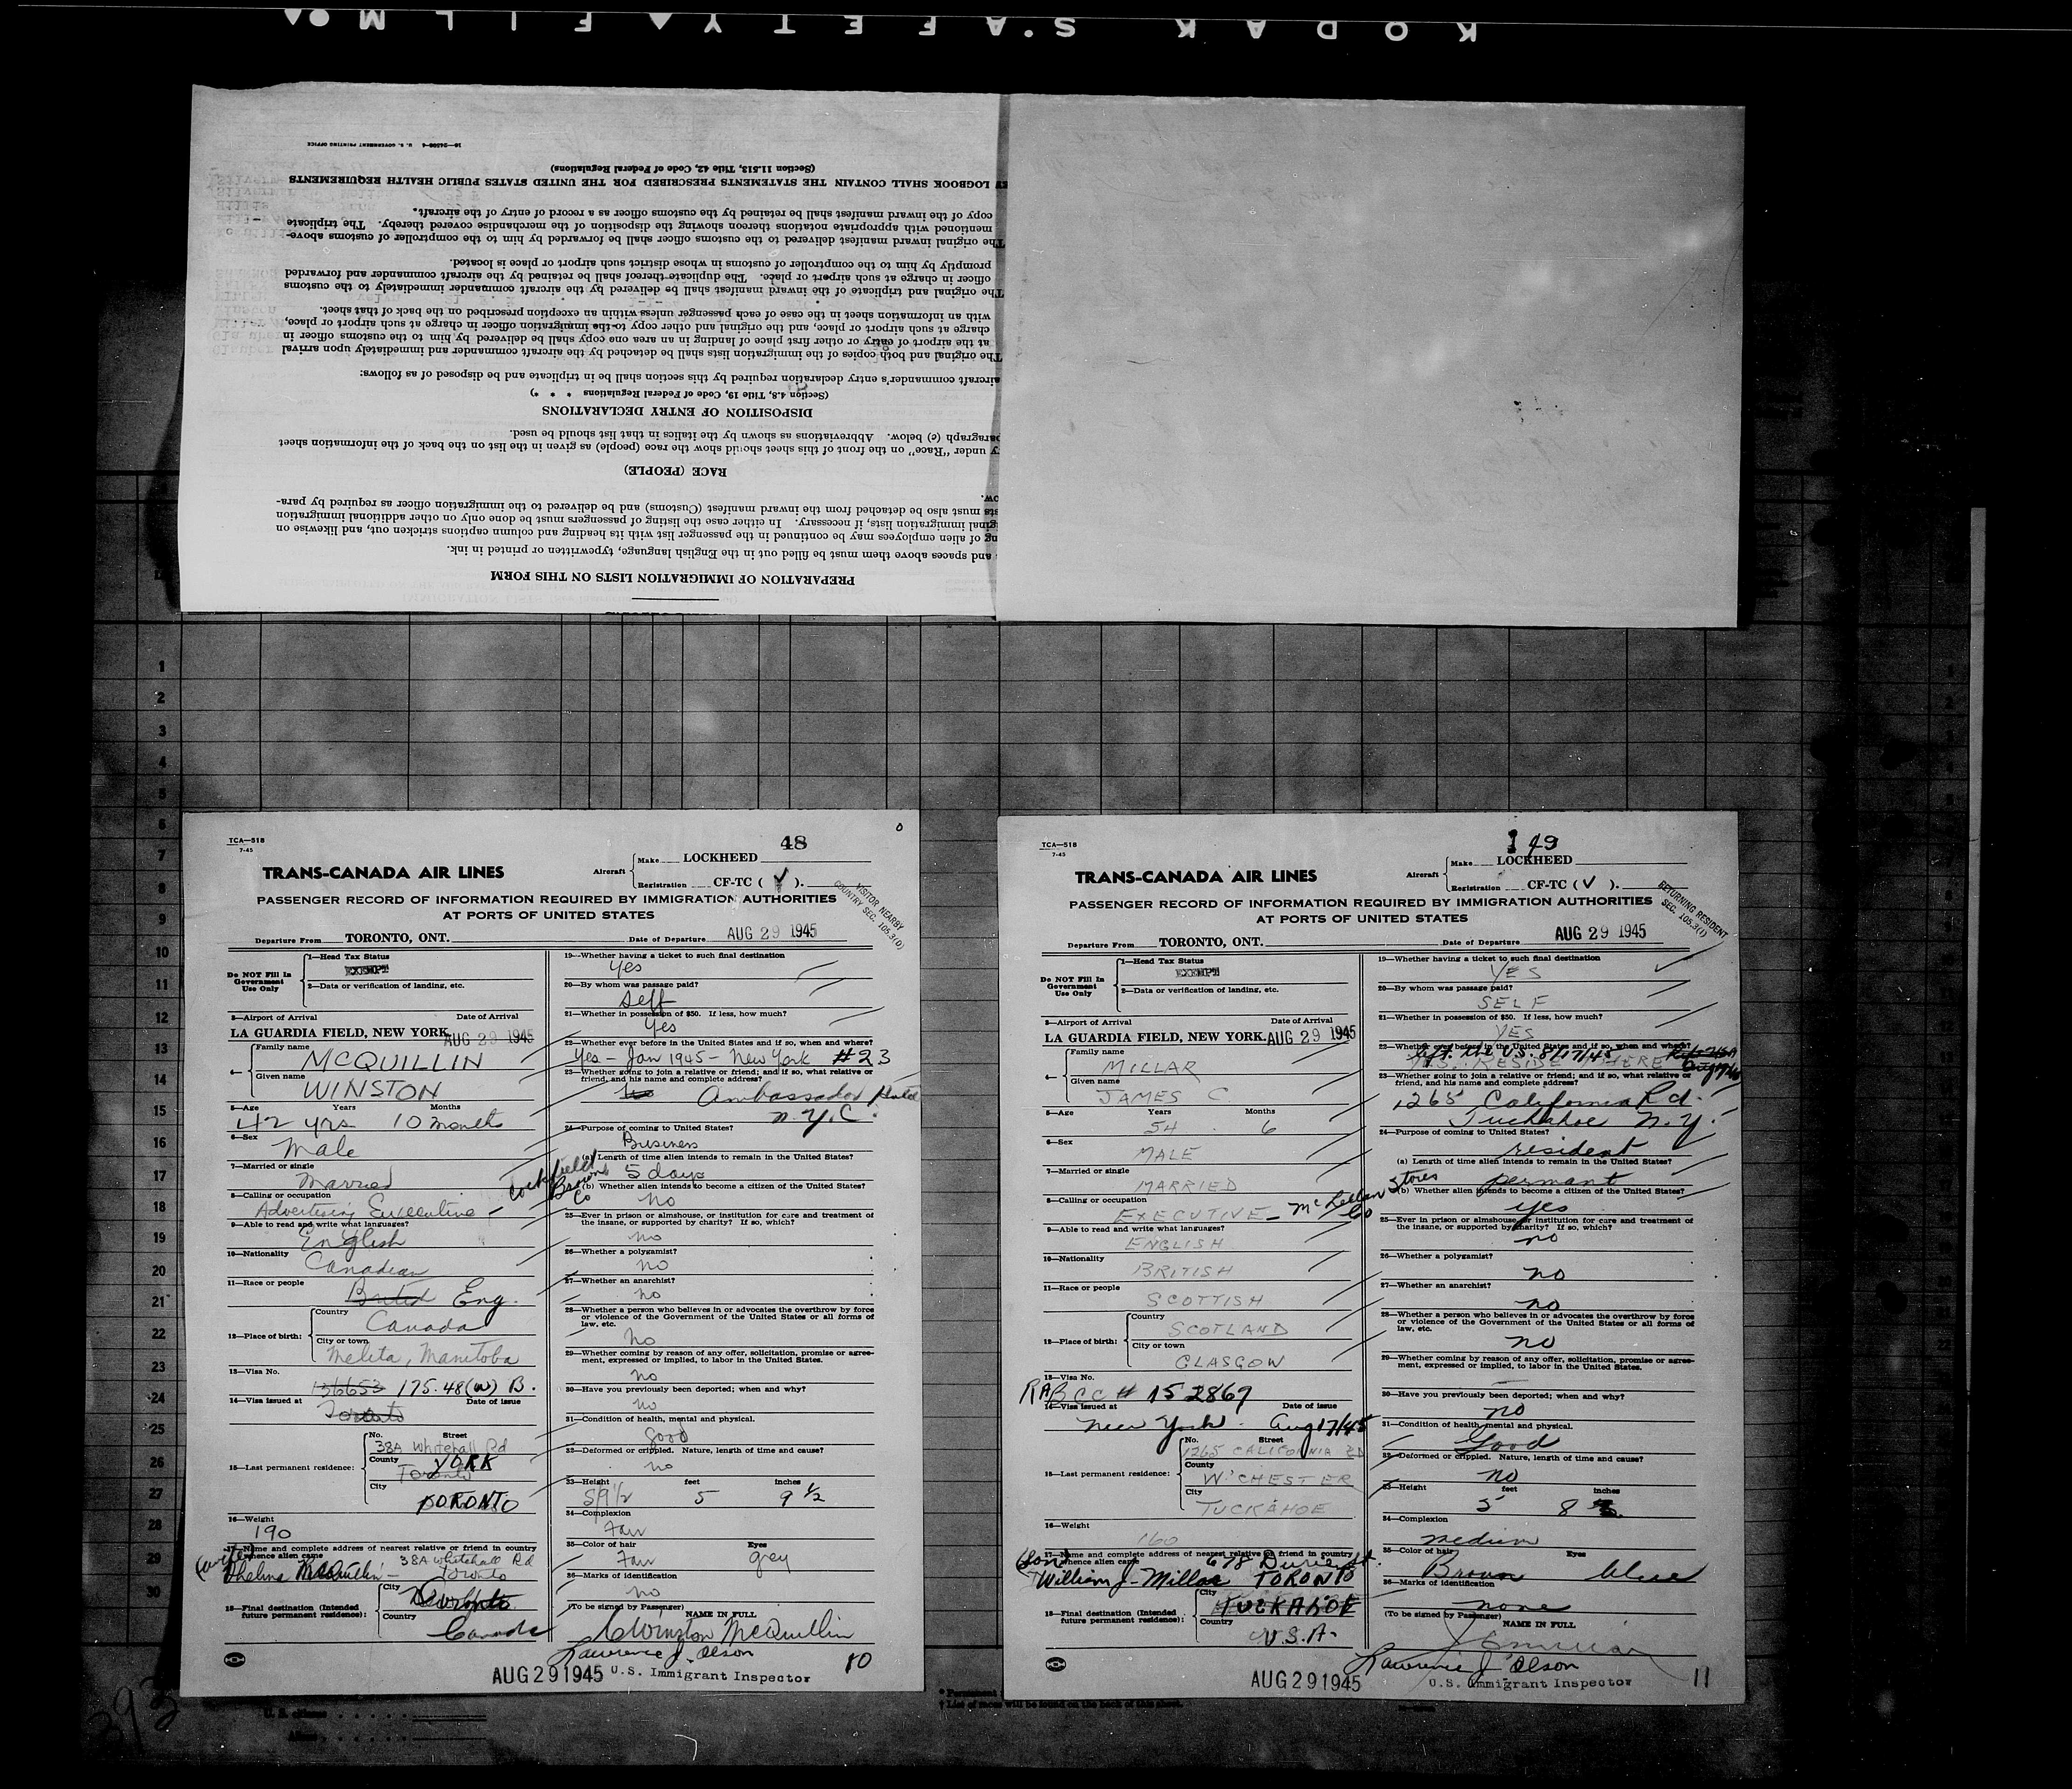 KODAK S'AFETY FILM
16—24200-4 U. S. GOVERNMENT PRINTING OFFICE
(Section 11.513, Title 42, Code of Federal Regulations)
LOGBOOK SHALL CONTAIN THE STATEMENTS PRESCRIBED FOR THE UNITED STATES PUBLIC HEALTH REQUIREMENTS
copy of the inward manifest shall be retained by the customs officer as a record of entry of the aircraft.
mentioned with appropriate notations thereon showing the disposition of the merchandise covered thereby. The triplicate
The original inward manifest delivered to the customs officer shall be forwarded by him to the comptroller of customs above-
promptly by him to the comptroller of customs in whose district such airport or place is located.
officer in charge at such airport or place. The duplicate thereof shall be retained by the aircraft commander and forwarded
The original and triplicate of the inward manifest shall be delivered by the aircraft commander immediately to the customs
with an information sheet in the case of each passenger unless within an exception prescribed on the back of that sheet.
charge at such airport or place, and the original and other copy to the immigration officer in charge at such airport or place,
at the airport of entry or other first place of landing in an area one copy shall be delivered by him to the customs officer in
The original and both copies of the immigration lists shall be detached by the aircraft commander and immediately upon arrival
aircraft commander's entry declaration required by this section shall be in triplicate and be disposed of as follows:
(Section 4.8, Title 19, Code of Federal Regulations * * *)
DISPOSITION OF ENTRY DECLARATIONS
paragraph (c) below. Abbreviations as shown by the italics in that list should be used.
y under "Race" on the front of this sheet should show the race (people) as given in the list on the back of the information sheet
RACE (PEOPLE)
ow.
sts must also be detached from the inward manifest (Customs) and be delivered to the immigration officer as required by para-
ginal immigration lists, if necessary. In either case the listing of passengers must be done only on other additional immigration
ng of alien employees may be continued in the passenger list with its heading and column captions stricken out, and likewise on
and spaces above them must be filled out in the English language, typewritten or printed in ink.
PREPARATION OF IMMIGRATION LISTS ON THIS FORM
1
2
3
4
5
6
7
8
9
10
11
12
13
14
15
16
17
18
19
20
21
22
23
24
25
26
27
28
29
30
TCA—518
7-45
48
0
TRANS-CANADA AIR LINES
Aircraft
Make LOCKHEED
Registration CF-TC ( V ).
VISITOR NEARBY
COUNTRY SEC. 105.3(0)
PASSENGER RECORD OF INFORMATION REQUIRED BY IMMIGRATION AUTHORITIES
AT PORTS OF UNITED STATES
Departure From TORONTO, ONT. Date of Departure AUG 29 1945
Do NOT Fill In Government Use Only
1—Head Tax Status
EXEMPT
2—Data or verification of landing, etc.
3—Airport of Arrival Date of Arrival
LA GUARDIA FIELD, NEW YORK AUG 29 1945
4—
Family name
MCQUILLIN
Given name
WINSTON
5—Age Years Months
42 yrs 10 months
6—Sex
Male
7—Married or single
Married
8—Calling or occupation
Advertising Executive - Cockfield Brown Co
9—Able to read and write what languages?
English
10—Nationality
Canadian
11—Race or people
British Eng.
12—Place of birth:
Country
Canada
City or town
Melita, Manitoba
13—Visa No.
136653 175.48(w) B.
14—Visa issued at Date of issue
Toronto
15—Last permanent residence:
No. Street
38A Whitehall Rd
County YORK
Toronto
City
TORONTO
16—Weight
190
17—Name and complete address of nearest relative or friend in country
whence alien came 38A Whitehall Rd
(wife) Thelma McQuillin - Toronto
18—Final destination (Intended future permanent residence):
City
Toronto
Country
Canada
19—Whether having a ticket to such final destination
Yes
20—By whom was passage paid?
Self
21—Whether in possession of $50. If less, how much?
Yes
22—Whether ever before in the United States and if so, when and where?
Yes - Jan 1945 - New York #23
23—Whether going to join a relative or friend; and if so, what relative or
friend, and his name and complete address?
no Ambassador Hotel
N.Y.C.
24—Purpose of coming to United States?
Business
(a) Length of time alien intends to remain in the United States?
5 days
(b) Whether alien intends to become a citizen of the United States?
No
25—Ever in prison or almshouse, or institution for care and treatment of
the insane, or supported by charity? If so, which?
no
26—Whether a polygamist?
no
27—Whether an anarchist?
no
28—Whether a person who believes in or advocates the overthrow by force
or violence of the Government of the United States or all forms of
law, etc.
No
29—Whether coming by reason of any offer, solicitation, promise or agree-
ment, expressed or implied, to labor in the United States.
no
30—Have you previously been deported; when and why?
no
31—Condition of health, mental and physical.
Good
32—Deformed or crippled. Nature, length of time and cause?
no
33—Height feet inches
5/9½ 5 9 ½
34—Complexion
Fair
35—Color of hair Eyes
Fair grey
36—Marks of identification
no
(To be signed by Passenger) NAME IN FULL
Winston McQuillin
Lawrence J. Olson
AUG 29 1945 U.S. Immigrant Inspector
10
TCA—518
7-45
49
TRANS-CANADA AIR LINES
Aircraft
Make LOCKHEED
Registration CF-TC ( V ).
RETURNING RESIDENT
SEC. 105.3(1)
PASSENGER RECORD OF INFORMATION REQUIRED BY IMMIGRATION AUTHORITIES
AT PORTS OF UNITED STATES
Departure From TORONTO, ONT. Date of Departure AUG 29 1945
Do NOT Fill In Government Use Only
1—Head Tax Status
EXEMPT
2—Data or verification of landing, etc.
3—Airport of Arrival Date of Arrival
LA GUARDIA FIELD, NEW YORK. AUG 29 1945
4—
Family name
MILLAR
Given name
JAMES C.
5—Age Years Months
54 6
6—Sex
MALE
7—Married or single
MARRIED
8—Calling or occupation
EXECUTIVE - McLellan Stores Co
9—Able to read and write what languages?
ENGLISH
10—Nationality
BRITISH
11—Race or people
SCOTTISH
12—Place of birth:
Country
SCOTLAND
City or town
GLASGOW
13—Visa No.
RABCC # 152867
14—Visa issued at Date of issue
New York Aug 17/45
15—Last permanent residence:
No. Street
1265 CALIFORNIA RD
County
W'CHESTER
City
TUCKAHOE
16—Weight
160
17—Name and complete address of nearest relative or friend in country
whence alien came 678 Durie St.
(Son) William J. Millar TORONTO
18—Final destination (Intended future permanent residence):
City
TUCKAHOE
Country
U.S.A.
19—Whether having a ticket to such final destination
YES
20—By whom was passage paid?
SELF
21—Whether in possession of $50. If less, how much?
YES
22—Whether ever before in the United States and if so, when and where?
left the U.S. 8/17/45
RESIDE HERE
23—Whether going to join a relative or friend; and if so, what relative or
friend, and his name and complete address?
1265 California Rd.
Tuckahoe N.Y.
24—Purpose of coming to United States?
resident
(a) Length of time alien intends to remain in the United States?
permant
(b) Whether alien intends to become a citizen of the United States?
yes
25—Ever in prison or almshouse, or institution for care and treatment of
the insane, or supported by charity? If so, which?
no
26—Whether a polygamist?
no
27—Whether an anarchist?
no
28—Whether a person who believes in or advocates the overthrow by force
or violence of the Government of the United States or all forms of
law, etc.
no
29—Whether coming by reason of any offer, solicitation, promise or agree-
ment, expressed or implied, to labor in the United States.
30—Have you previously been deported; when and why?
no
31—Condition of health, mental and physical.
Good
32—Deformed or crippled. Nature, length of time and cause?
no
33—Height feet inches
5 8
34—Complexion
medium
35—Color of hair Eyes
Brown blue
36—Marks of identification
none
(To be signed by Passenger) NAME IN FULL
Lawrence J. Olson
AUG 29 1945 U.S. Immigrant Inspector
11
393
U. S. citizens
Aliens
* Permanent
† List of races will be found on the back of this sheet.